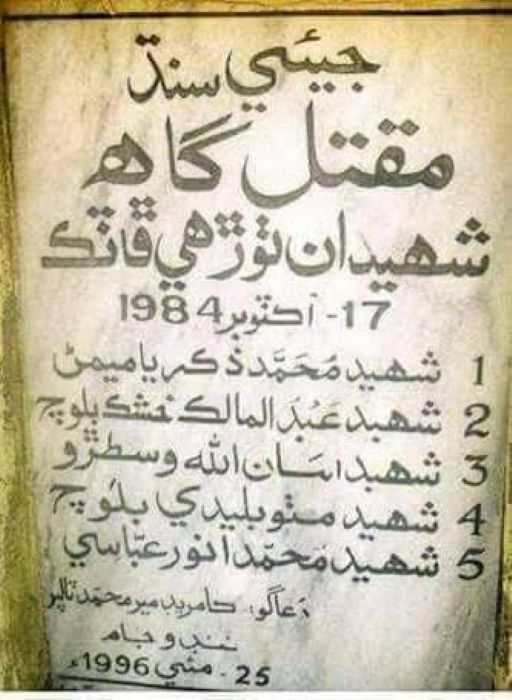 جيئي سنڌ
مقتل گاھ
شهيدان ٺوڙهي ڦاٽڪ
17- آڪٽوبر 1984
1 شهيد مُحَمَّد ذڪريا ميمڻ
2 شهيد عَبدَ المالڪ خشڪ بلوچ
3 شهيد امان الله وسطڙو
4 شهيد مٺو بليدي بلوچ
5 شهيد مُحمّد انور عبّاسي
دُعاگو: ڪامريڊ مير محمّد ٽالپر
ٽنڊوڄام
25 - مئي 1996ع